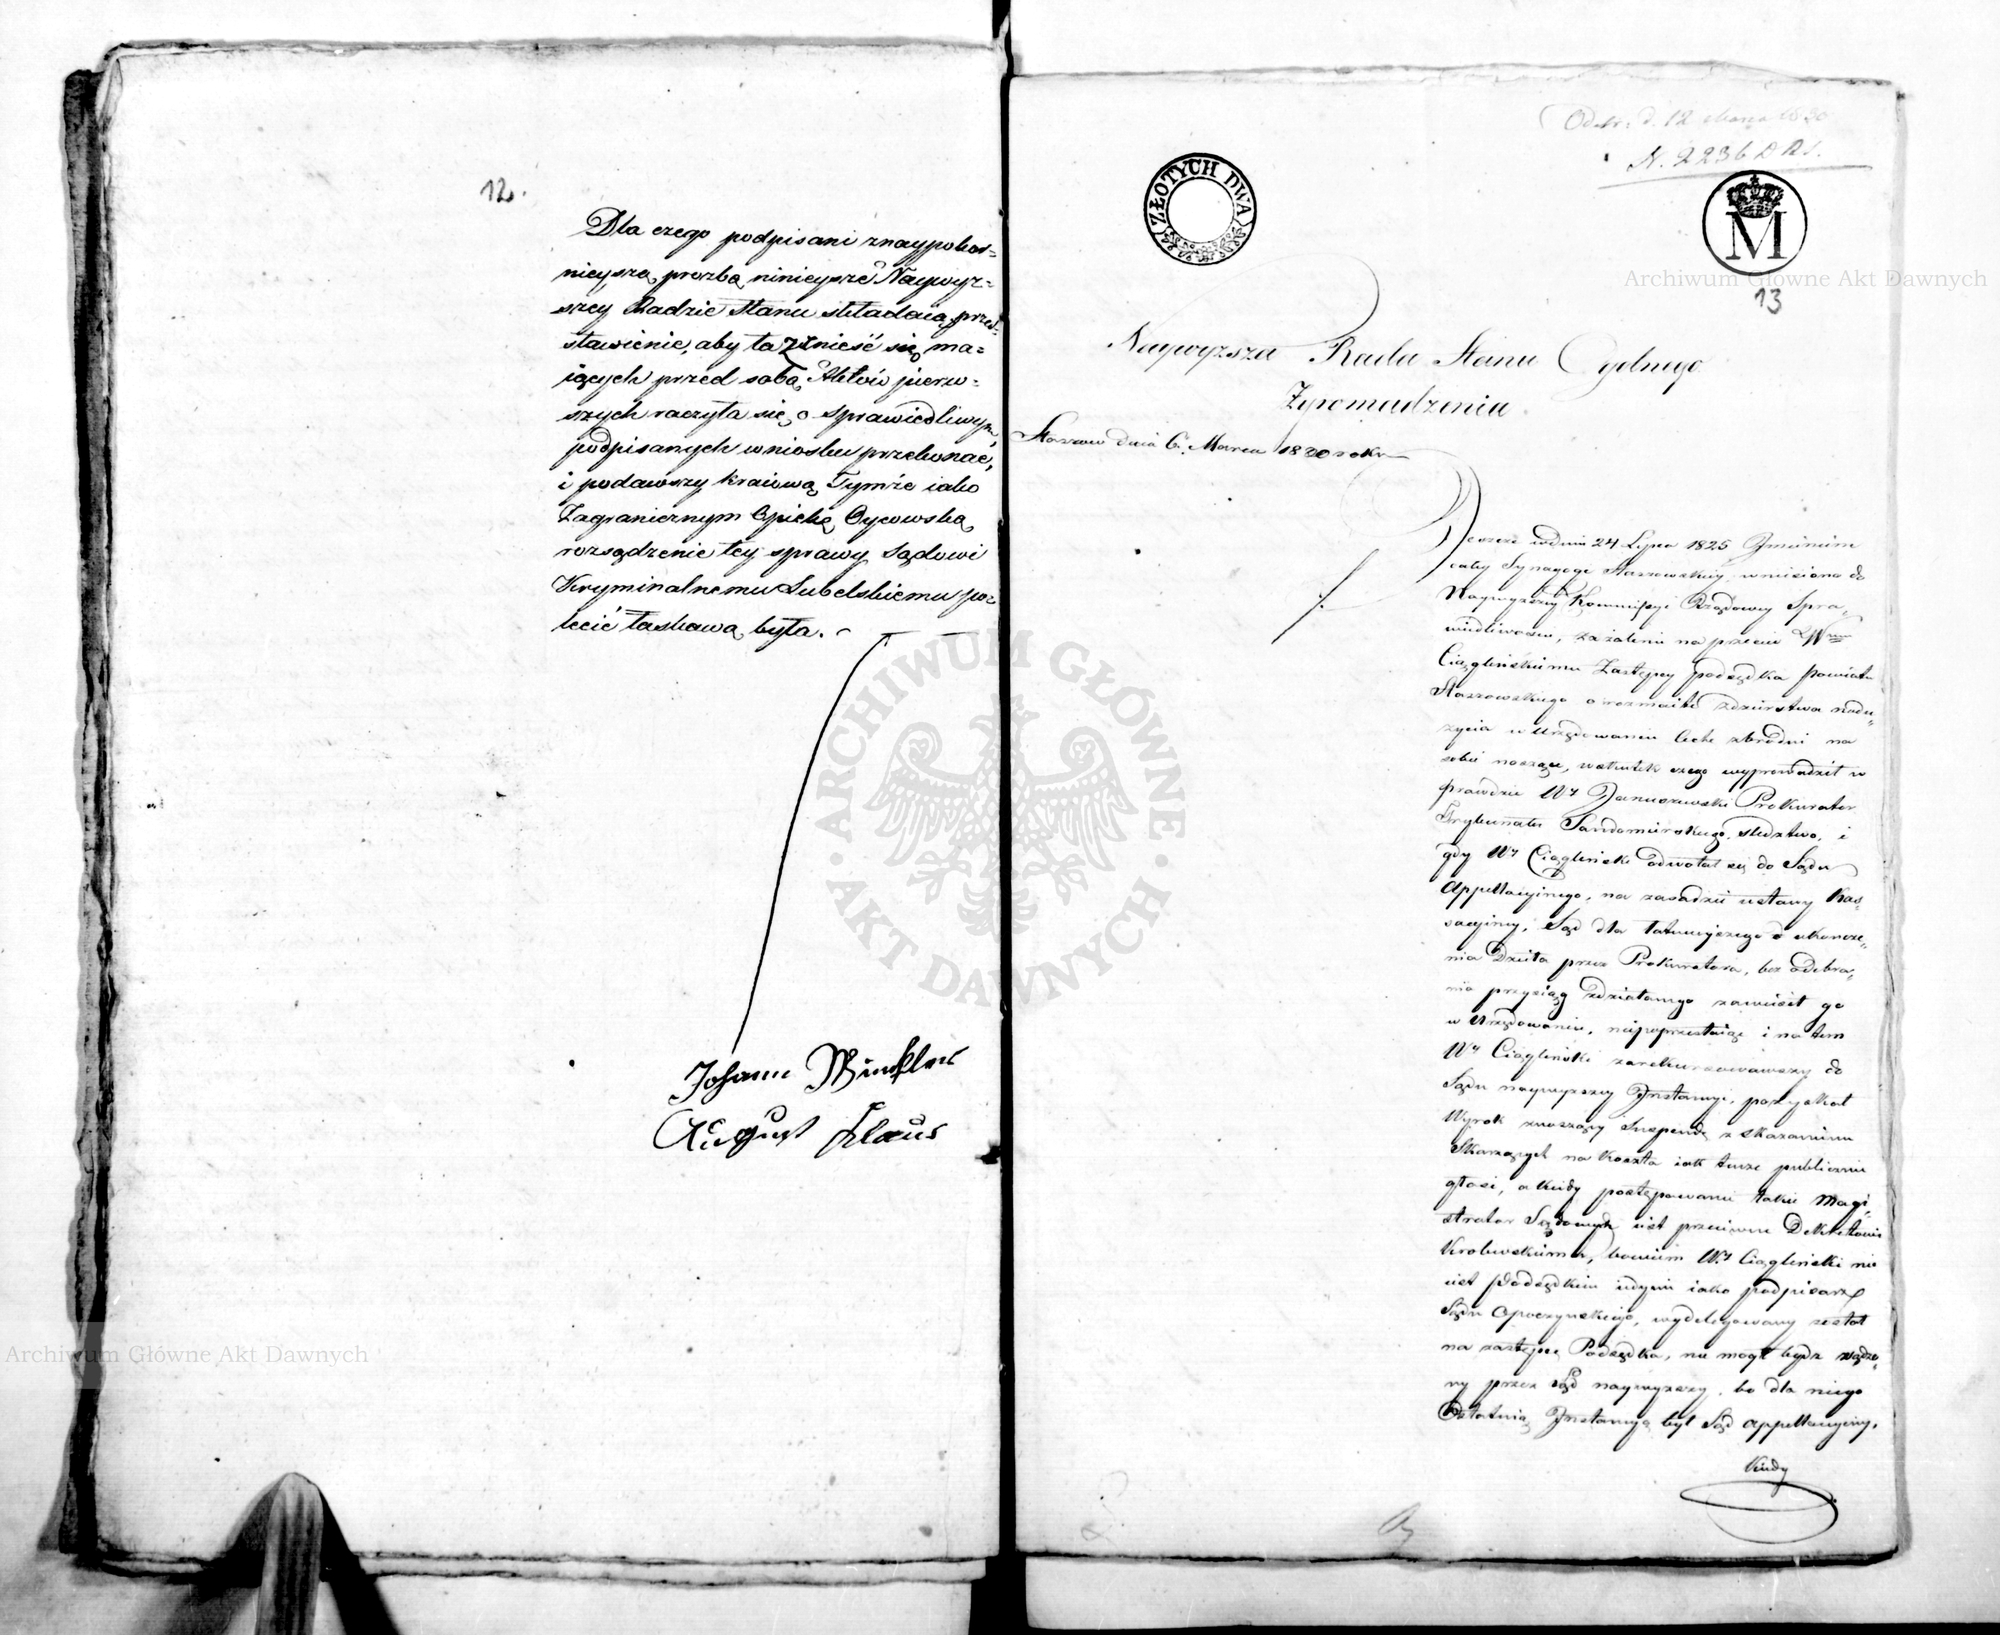 12.
Dla czego podpisani z naypokor-
nieyszą prozbą ninieysze Naywyz-
szey Radzie Stanu składaią przed-
stawienie, aby ta znieść się ma-
iących przed sobą Aktów pierw-
szych raczyła się o sprawiedliwym
podpisanych wniosku przekonać,
i podawszy kraiową Tymże iako
Zagranicznym Opiekę Oycowską,
rozsądzenie tey sprawy Sądowi
Kryminalnemu Lubelskiemu po-
lecić łaskawą była.
Johann Winkler
August Klaus
Odebr. d. 12 Marca 1830
N. 2236 D R S.
ZŁOTYCH DWA
M
13
Naywyzsza Rada Stanu Ogolnego
Zgromadzenia
Staszow dnia 6. Marca 1830 roku
Jeszcze w dniu 24 Lipca 1825 Imieniem
całey Synagogi Staszowskiey wniesione do
Naywyzszey Kommissyi Rządowey Spra-
wiedliwości, zażalenie na przeciw Wmu
Ciąglińskiemu Zastępcy podsędka Powiatu
Staszowskiego o rozmaite zdzierstwa nadu-
zycia w Urzędowaniu Cechę zbrodni na
sobie noszące, w skutek czego wyprowadził w
prawdzie Wy Januszewski Prokurator
Trybunału Sandomirskiego śledztwo, i
gdy Wy Ciągliński odwołał się do Sądu
Appellacyinego, na zasadzie ustawy Kas-
sacyiney, Sąd dla łatwieyszego ukończe-
nia Dzieła przez Prokuratora, bez odebra-
nia przysiąg zdziałanego zawiesił go
w Urzędowaniu, niepoprzestaiąc i na tem
Wy Ciągliński zarekursowawszy do
Sądu naywyzszey Instancyi, pozyskał
Wyrok znoszący Suspensę z skazaniem
Skarzących na koszta iak tenze publicznie
głosi, a kiedy postępowanie takie Magi-
stratur Sądowych iest przeciwne Dekretowi
Krolewskiemu, bowiem Wy Ciągliński nie
iest Podsędkiem iedynie iako podpisarz
Sądu Opoczyńskiego, wydelegowany został
na zastępcę Podsędka, nie mogł bydz sądzo-
ny przez Sąd naywyzszy, bo dla niego
Ostatnią Instancyą był Sąd Appellacyiny,
Kiedy
Archiwum Główne Akt Dawnych
Archiwum Główne Akt Dawnych
ARCHIWUM GŁÓWNE AKT DAWNYCH